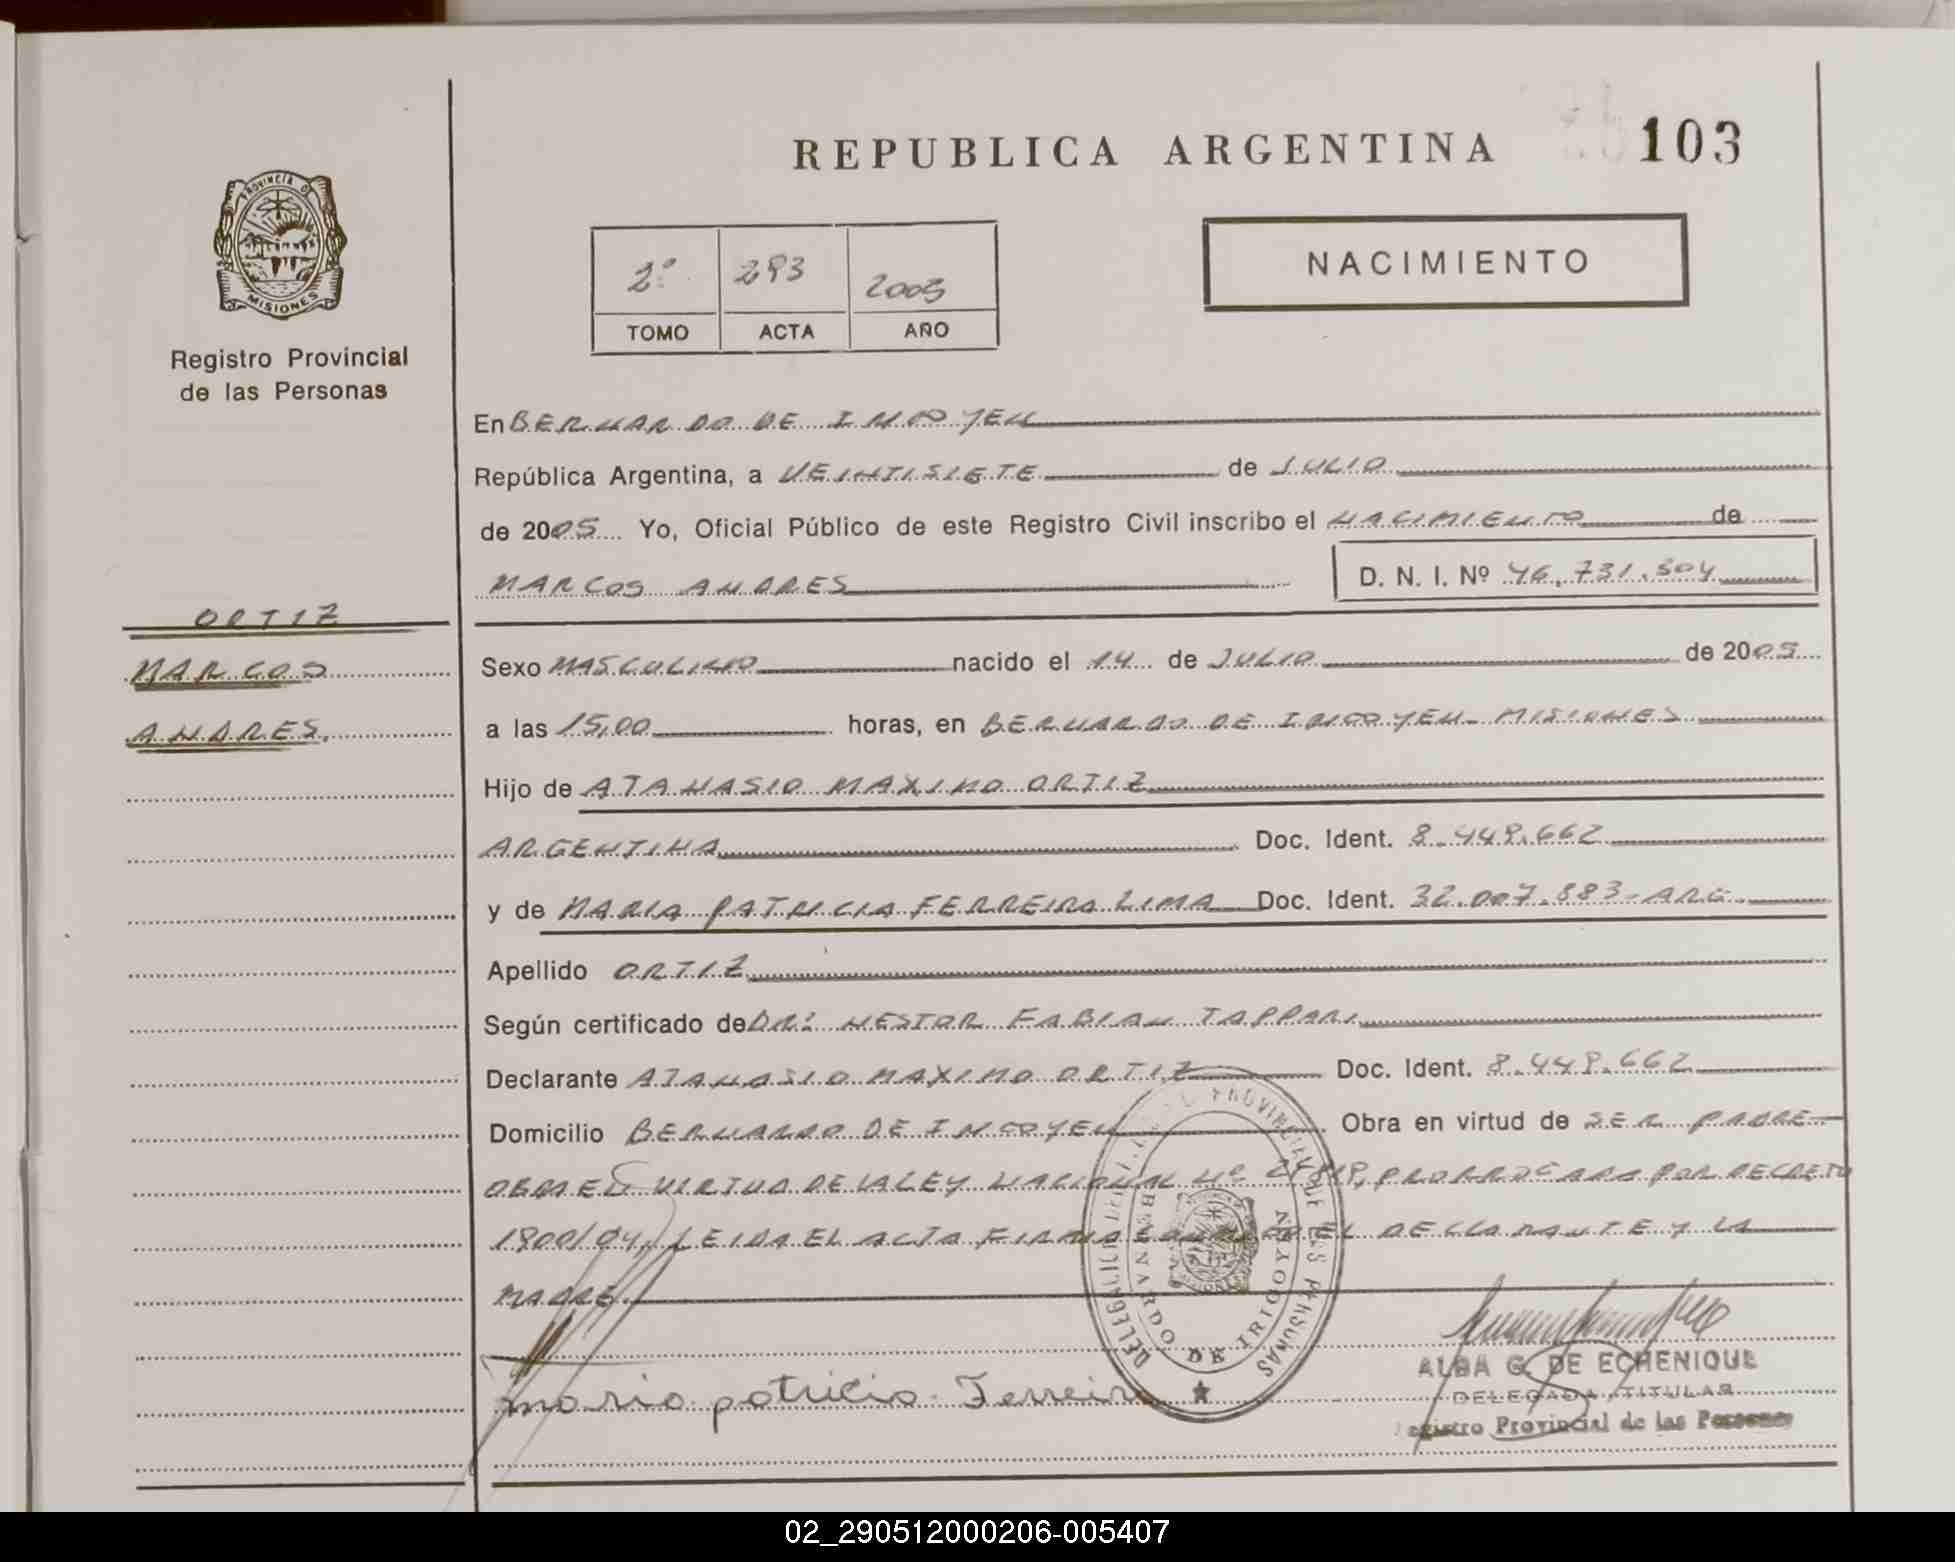 REPUBLICA ARGENTINA
103
PROVINCIA DE
MISIONES
Registro Provincial
de las Personas
2º 293 2005
TOMO ACTA AÑO
NACIMIENTO
En BERNARDO DE IRIGOYEN
República Argentina, a VEINTISIETE de JULIO
de 2005 Yo, Oficial Público de este Registro Civil inscribo el NACIMIENTO de
MARCOS ANDRES D. N. I. Nº 46.731.304
ORTIZ
MARCOS
ANDRES.
Sexo MASCULINO nacido el 14 de JULIO de 2005
a las 15,00 horas, en BERNARDO DE IRIGOYEN - MISIONES
Hijo de ATANASIO MAXIMO ORTIZ
ARGENTINA Doc. Ident. 8.449.662
y de MARIA PATRICIA FERREIRA LIMA Doc. Ident. 32.007.883 - ARG.
Apellido ORTIZ
Según certificado de DR: NESTOR FABIAN TAPPARI
Declarante ATANASIO MAXIMO ORTIZ Doc. Ident. 8.449.662
Domicilio BERNARDO DE IRIGOYEN Obra en virtud de SER PADRE
OBRA EN VIRTUD DE LA LEY NACIONAL Nº PRORROGADA POR DECRETO
1900/04, LEIDA EL ACTA FIRMA EL DECLARANTE Y LA
MADRE
DE LAS PERSONAS
BERNARDO DE IRIGOYEN
maria patricia Ferreira
ALBA G. DE ECHENIQUE
DELEGADA TITULAR
Registro Provincial de las Personas
02_290512000206-005407